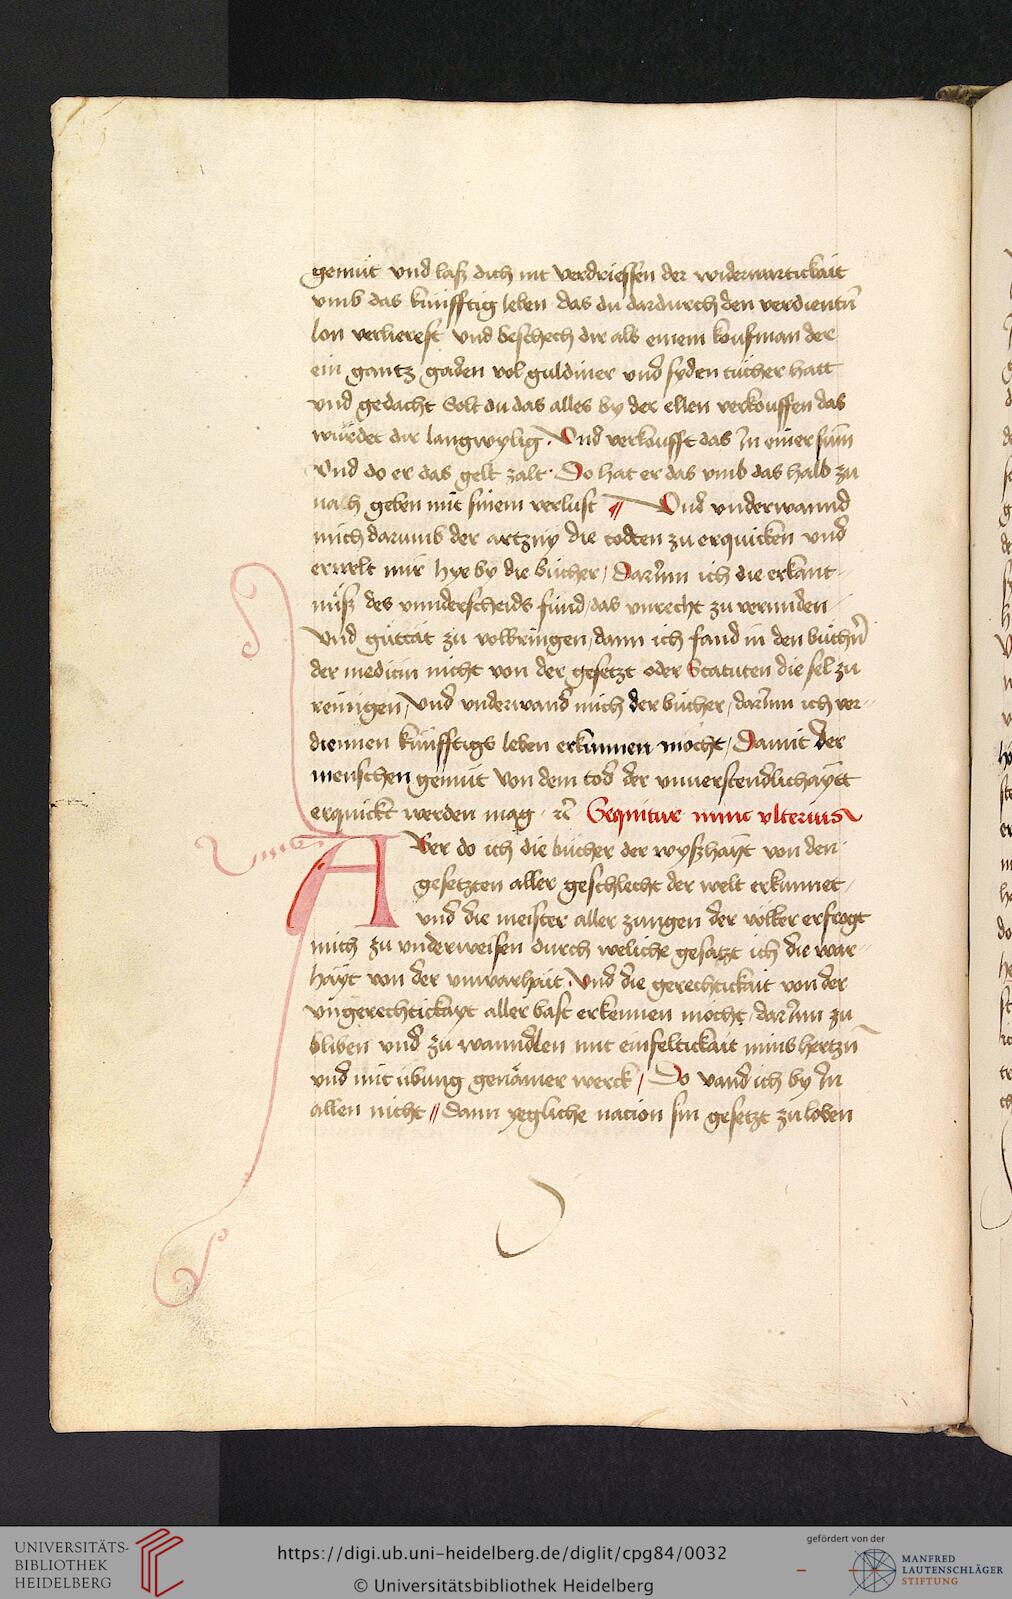 gemüt vnd laß dich nit verdriessen der widerwartickait
vmb das künfftig leben das du dardurch den verdientñ
lon verlierest vnd beschech dir als einem koufman der
ein gantz gaden vol guldiner vnd syden tücher hatt
vnd gedacht Solt du das alles by der ellen verkouffen das
würdet dir langwylig. Vnd verkoufft das In einer sum
Vnd do er das gelt zalt. Do hat er das vmb das halb zu
nach geben mit sinem verlust Vnd vnderwannd
mich darumb der artzny die todten zu erquicken vnd
erwelt mir hye by die bücher / Darinn ich die erkant-
nüß des vnnderscheids fünd / das vnrecht zu vermiden
Vnd güttät zü volbringen / dann ich fand in den büchñ
der medicin nicht von der gesetzt oder Statuten die sel zu
reinigen / Vnd vnderwand mich der bücher / darinn ich ver-
diennen künfftigs leben erkunnen möcht / Damit der
menschen gemüt von dem tod der vnuerstendlichaytt
erquickt werden mag Sequitur nunc vlterius
ABer do ich die bücher der wyßhayt von den
gesetzten aller geschlecht der welt erkunnet
vnd die meister aller zungen der völker erfrogt
mich zu vnderweisen durch weliche gesatzt ich die war-
hayt von der vnwarhait. Vnd die gerechtickait von der
vngerechtickayt aller bast erkennen möcht / darinn zu
bliben vnd zu wanndlen mit einfeltickait mins hertzñ
vnd mit übung genämer werck / Do vand ich by In
allen nicht // Dann yegliche nacion sin gesetzt zu loben
UNIVERSITÄTS-
BIBLIOTHEK
HEIDELBERG
https://digi.ub.uni-heidelberg.de/diglit/cpg84/0032
© Universitätsbibliothek Heidelberg
gefördert von der
MANFRED
LAUTENSCHLÄGER
STIFTUNG